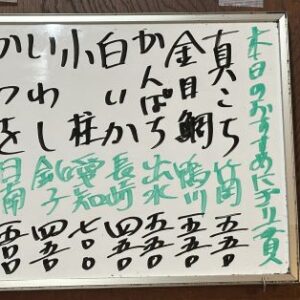 本日のおすすめにぎり一貫
真こち 竹岡 五五〇
金目鯛 鴨川 五五〇
かんぱち 出水 五五〇
白いか 長崎 四五〇
小柱 愛知 七〇〇
いわし 金子 四五〇
かつを 日南 五〇〇